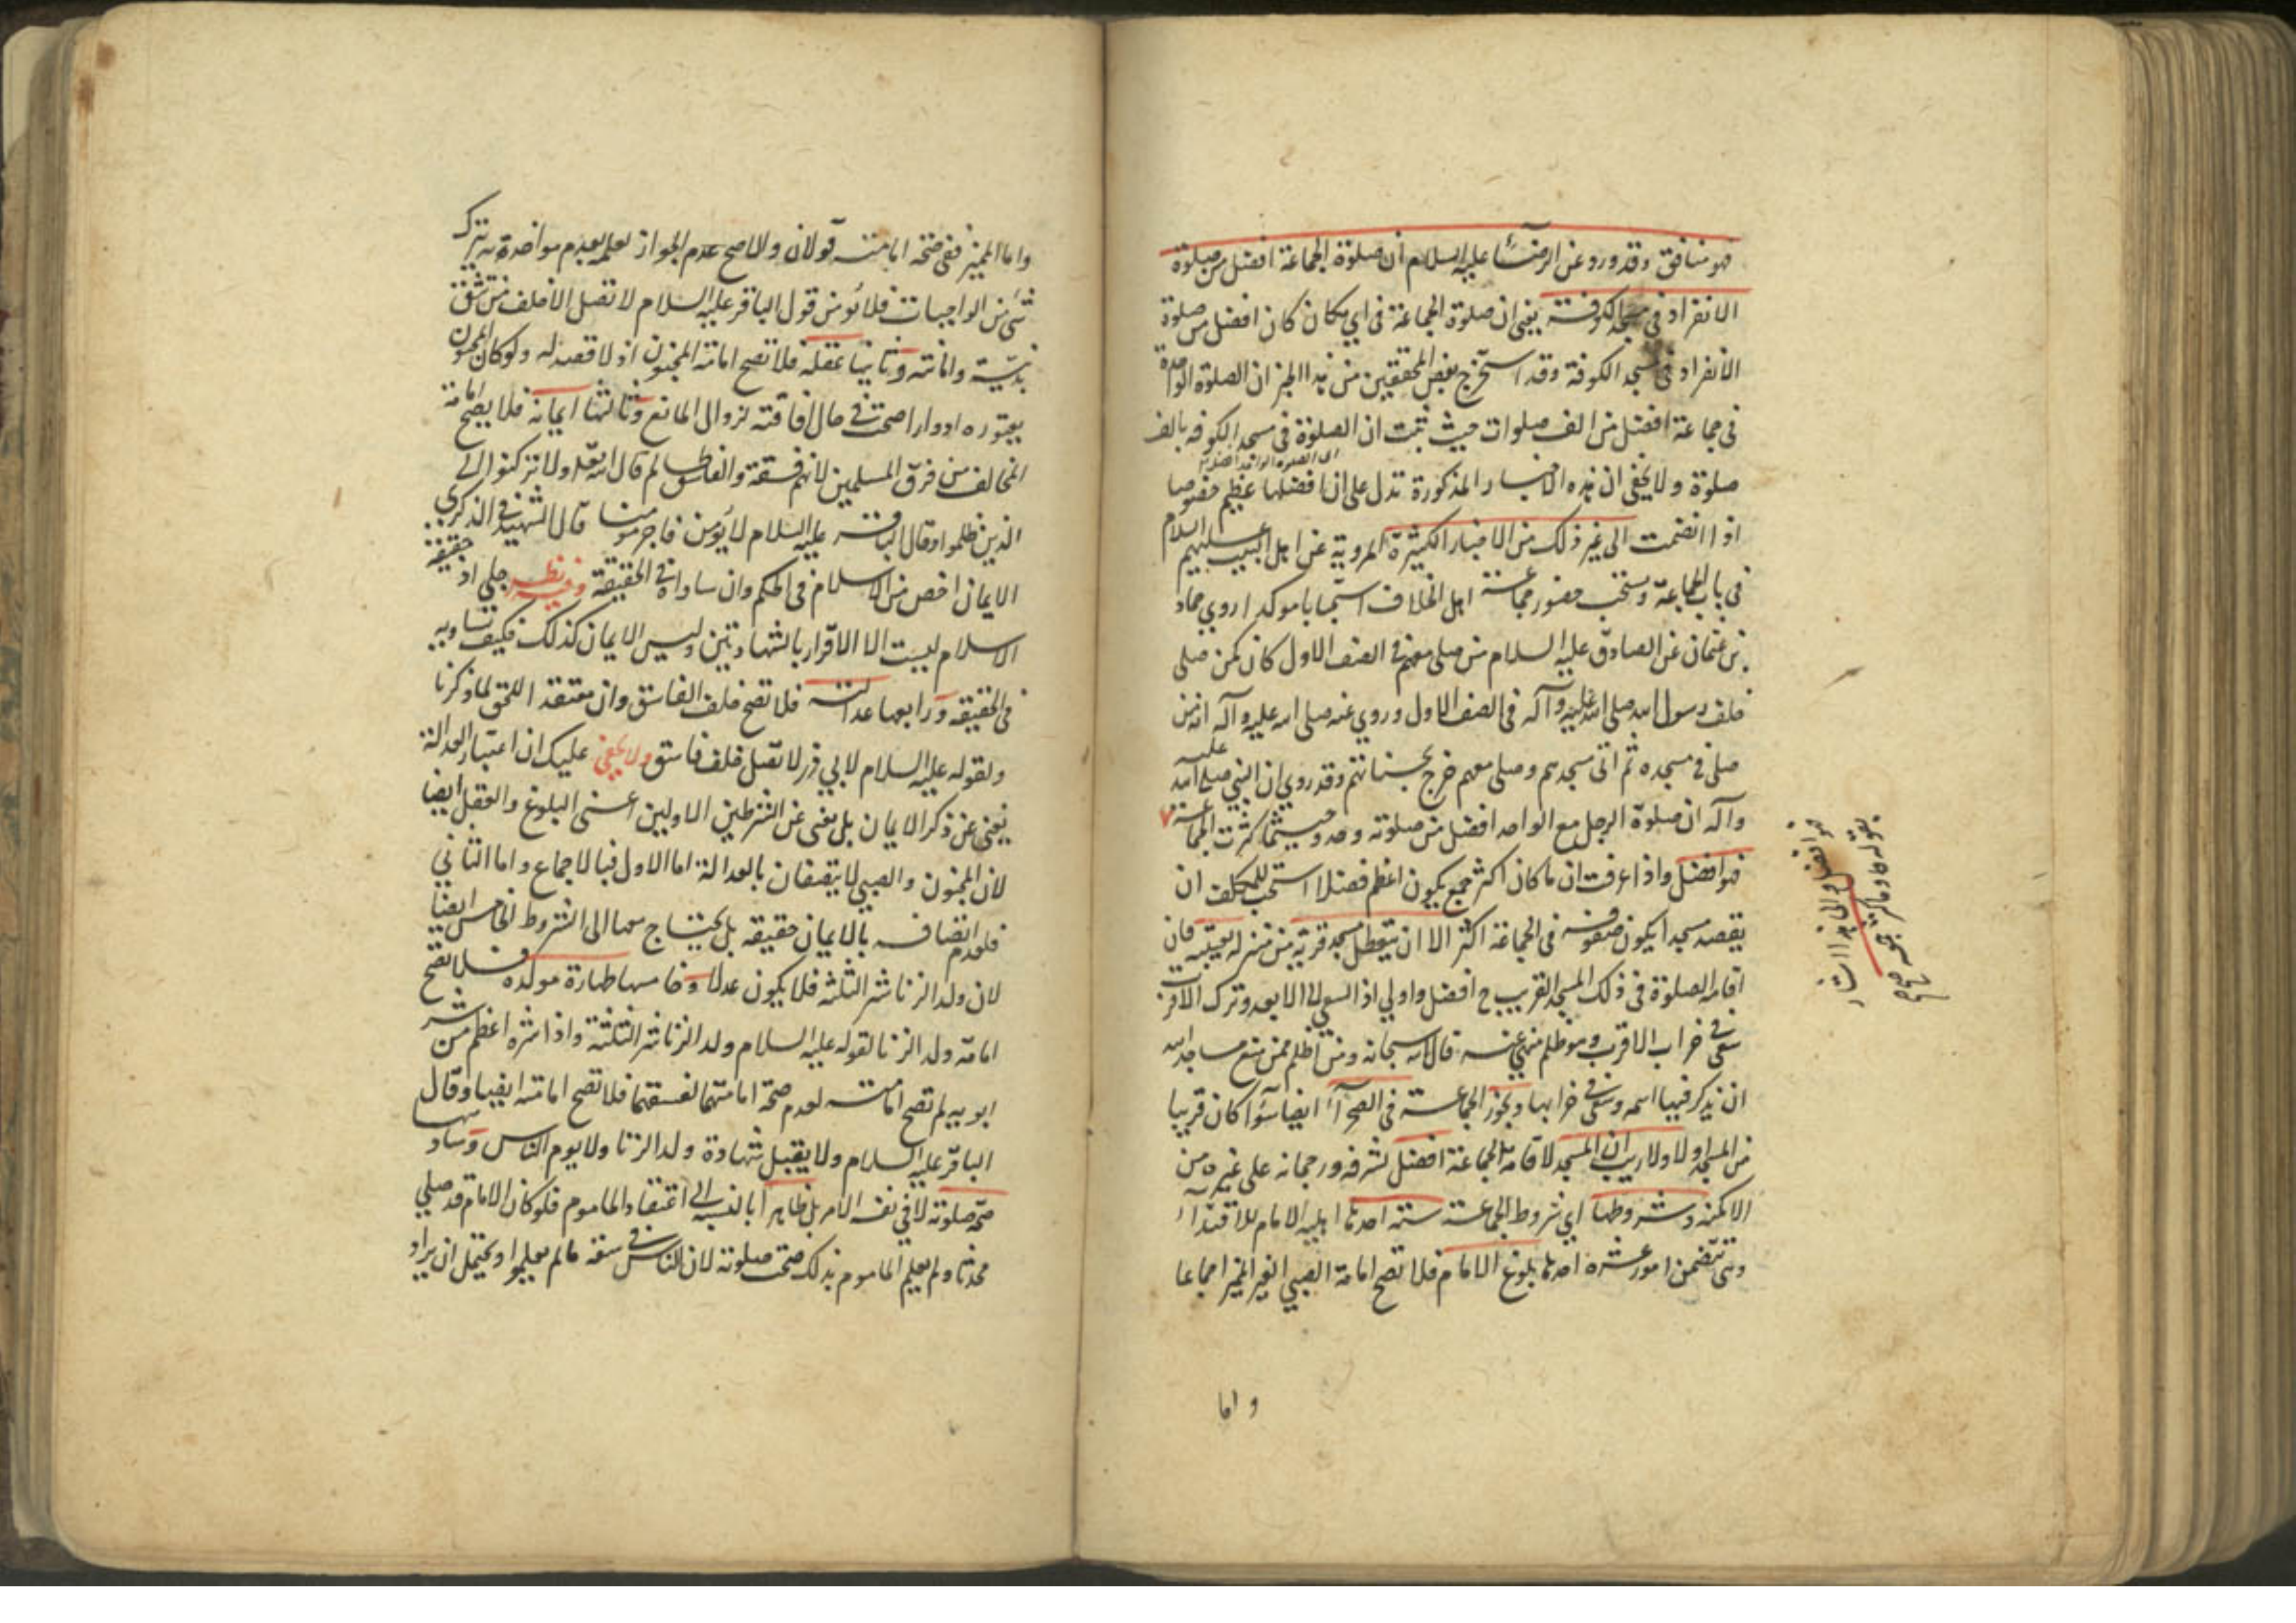 فهو منافق وقد ورد عن الرضا عليه السلام ان صلوة الجماعة افضل من صلوة
الانفراد في مسجد الكوفة يعني ان صلوة الجماعة في اي مكان كان افضل من صلوة
الانفراد في مسجد الكوفة وقد استخرج بعض المحققين من هذا الخبر ان الصلوة الواحدة
في جماعة افضل من الف صلوات حيث ثبت ان الصلوة في مسجد الكوفه بالف
صلوة ولا يخفى ان هذه الاخبار المذكورة تدل على ان فضلها عظيم خصوصا
اذا انضمت الى غير ذلك من الاخبار الكثيرة المروية عن اهل البيت عليهم السلام
في باب الجماعة ويستحب حضور جماعة اهل الخلاف استحبابا موكدا روي حماد
بن عثمان عن الصادق عليه السلام من صلى معهم في الصف الاول كان كمن صلى
خلف رسول الله صلى الله عليه وآله في الصف الاول وروي عنه صلى الله عليه وآله انه من
صلى في مسجده ثم اتى مسجدهم وصلى معهم خرج بحسناتهم وقد روي ان النبي صلى الله عليه
وآله ان صلوة الرجل مع الواحد افضل من صلوته وحده وحيثما كثرت الجماعة
فهو افضل واذا عرفت ان ما كان اكثر جمع يكون اعظم فضلا استحب للمكلف ان
يقصد مسجدا يكون صفوفه في الجماعة اكثر الا ان يتعطل مسجد قريب من منزله بغيبته فان
اقامة الصلوة في ذلك المسجد القريب ح افضل واولي اذ السعي الى الابعد وترك الاقرب
سعى في خراب الاقرب وهو ظلم منهي عنه قال الله سبحانه ومن اظلم ممن منع مساجد الله
ان يذكر فيها اسمه وسعى في خرابها ويجوز الجماعة في الصحرآء ايضا سوآء كان قريبا
من المسجد اولا ولا ريب ان المسجد لاقامة الجماعة افضل لشرفه ورجحانه على غيره من
الامكنه وشروطها اي شروط الجماعة ستة احدها اهلية الامام للاقتدآء
وهي تتضمن امور عشرة احدها بلوغ الامام فلا تصح امامة الصبي الغير المميز اجماعا
واما
واما المميز ففي صحة امامته قولان والاصح عدم الجواز لعلمه بعدم مواخذته بترك
شيء من الواجبات فلا يؤمن قول الباقر عليه السلام لا تصل الا خلف من تثق
بدينه وامانته وثانيها عقله فلا تصح امامة المجنون اذ لا قصد له ولو كان الجنون
يعتوره ادوارا صحت في حال افاقته لزوال المانع وثالثها ايمانه فلا يصح امامة
المخالف من فرق المسلمين لانهم فسقة والفاسق ظالم قال الله تعالى ولا تركنوا الى
الذين ظلموا وقال الباقر عليه السلام لا يؤمن فاجر مومنا قال الشهيد في الذكرى
الايمان اخص من الاسلام في الحكم وان ساواه في الحقيقة وفيه نظر جلي اذ حقيقة
الاسلام ليست الا الاقرار بالشهادتين وليس الايمان كذلك فكيف تساويه
في الحقيقه ورابعها عدالته فلا تصح خلف الفاسق وان معتقد اللحق لما ذكرنا
ولقوله عليه السلام لابي ذر لا تصل خلف فاسق ولا يخفى عليك ان اعتبار العدالة
يغني عن ذكر الايمان بل يغني عن الشرطين الاولين اعني البلوغ والعقل ايضا
لان المجنون والصبي لا يتصفان بالعدالة اما الاول فبالاجماع واما الثاني
فلعدم اتصافه بالايمان حقيقه بل يحتاج معها الى الشروط الخامس ايضا
لان ولد الزنا شر الثلثه فلا يكون عدلا وخامسها طهارة مولده فلا تصح
امامة ولد الزنا لقوله عليه السلام ولد الزنا شر الثلثة واذا شره اعظم من شر
ابويه لم تصح امامته لعدم صحة امامتهما لفسقهما فلا تصح امامته ايضا وقال
الباقر عليه السلام ولا يقبل شهادة ولد الزنا ولا يوم الناس وسادسها
صحة صلوته لا في نفس الامر بل ظاهرا بالنسبة الى اعتقاد الماموم فلو كان الامام قد صلى
محدثا ولم يعلم الماموم بذلك صحت صلوته لان الناس في سعة مالم يعلموا ويحتمل ان يراد